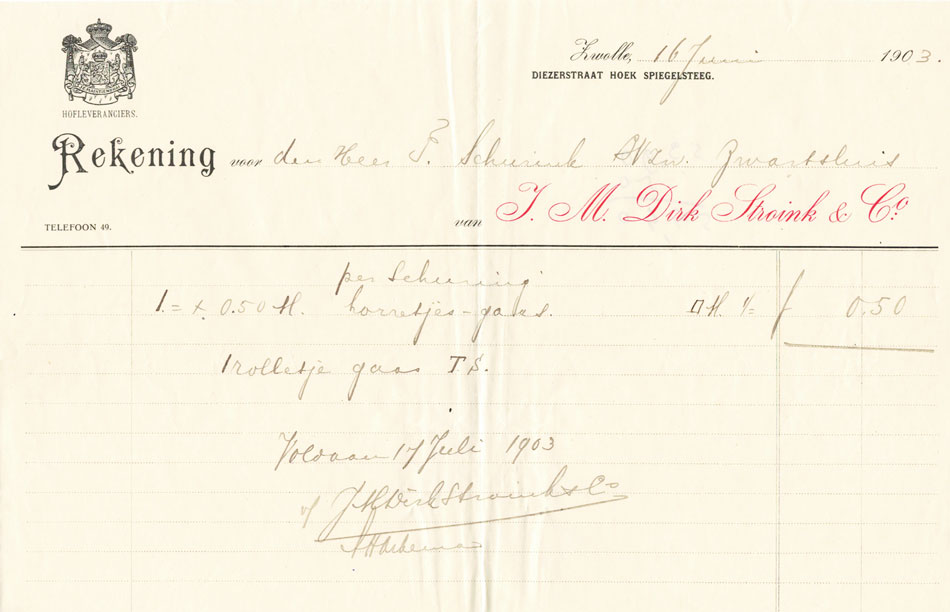 Zwolle, 16 Juni 1903.
DIEZERSTRAAT HOEK SPIEGELSTEEG.
HOFLEVERANCIERS.
Rekening voor den Heer T. Schuurink Zwartsluis
van J. M. Dirk Stroink & Co.
TELEFOON 49.
per Schuring
1.= x 0.50 M. horretjes-gaas. □ M. 1/= f 0.50
1 rolletje gaas T.S.
Voldaan 17 Juli 1903
J M Dirk Stroink & Co